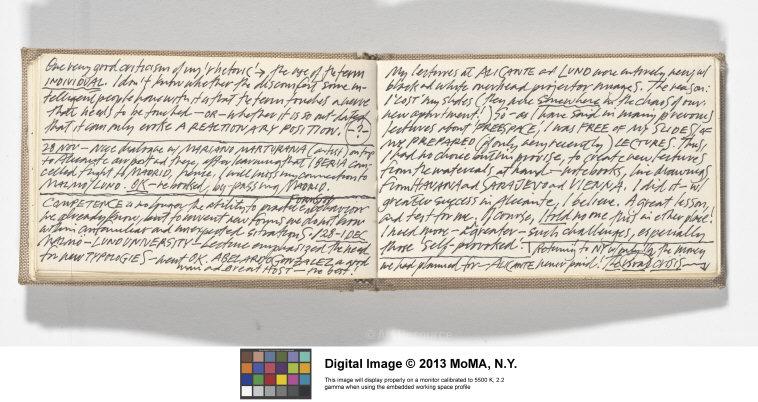 One very good criticism of my 'rhetoric' → the use of the term
INDIVIDUAL. I don't know whether the discomfort some in-
telligent people have with it is that the term touches a nerve
that needs to be touched – OR – whether it is so out-dated
that it can only evoke A REACTIONARY POSITION. (–?–)
28 NOV – Nice dialogue w/ MARIANO MARTURANA (artist) on trip
to Alicante airport and there, after learning that IBERIA can-
celled flight to MADRID, hence, I will miss my connection to
MALMO/LUND. OK – rebooked, by-passing MADRID.
COMPETENCE is no longer the ability to practice forms of behavior
we already know, but to invent new forms we do not know
within unfamiliar and unexpected situations. / 28–1 DEC
MALMO – LUND UNIVERSITY – Lecture emphasized the need
for new TYPOLOGIES – went OK. ABELARDO GONZALEZ a good
man and Great HOST – the best!
My lectures at ALICANTE and LUND were entirely new, w/
black and white overhead projector images. The reason:
I 'lost' my slides (they were somewhere in the chaos of our
new apartment!,) So – as I have said in many previous
lectures about FREESPACE, I was FREE OF MY SLIDES, OF
my PREPARED (if only very recently) LECTURES. Thus,
I had no choice but to improvise, to create new lectures
from the materials at hand – notebooks, line drawings
from HAVANA and SARAJEVO and VIENNA. I did it – w/
greater success in Alicante, I believe. A great lesson,
and test for me. Of course, I told no one this in either place!
I need more – a greater – such challenges, especially
those 'self-provoked.' I returned to NY w/ only the money
we had planned for – ALICANTE never paid! PERSONAL CRISIS
Digital Image © 2013 MoMA, N.Y.
This image will display properly on a monitor calibrated to 5500 K, 2.2
gamma when using the embedded working space profile